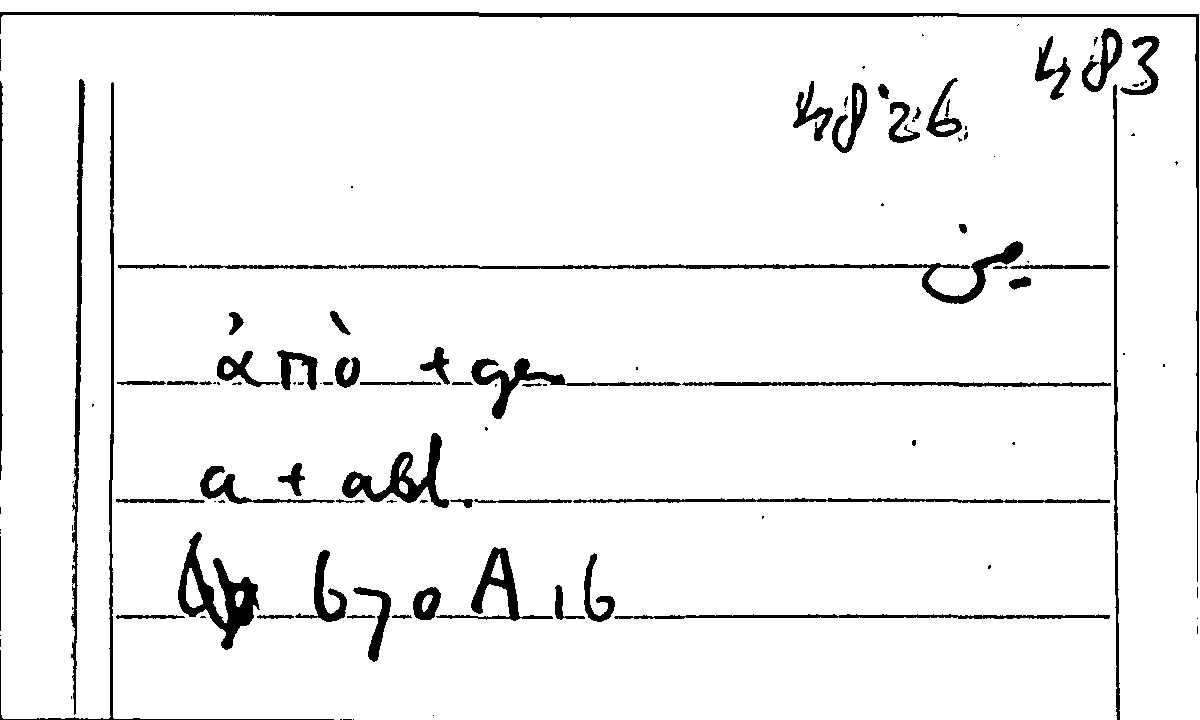 483
48'26
من
ἀπὸ + gen
a + abl.
670 A 16